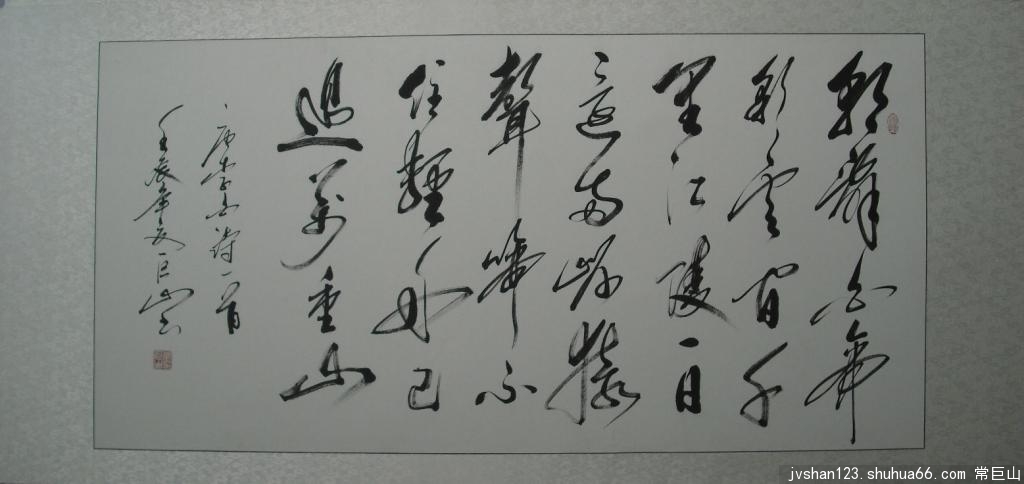 朝辭白帝
彩雲間千
里江陵一日
還兩岸猿
聲啼不
住輕舟已
過萬重山
唐李白詩一首
壬辰季夏巨山书
jvshan123.shuhua66.com 常巨山